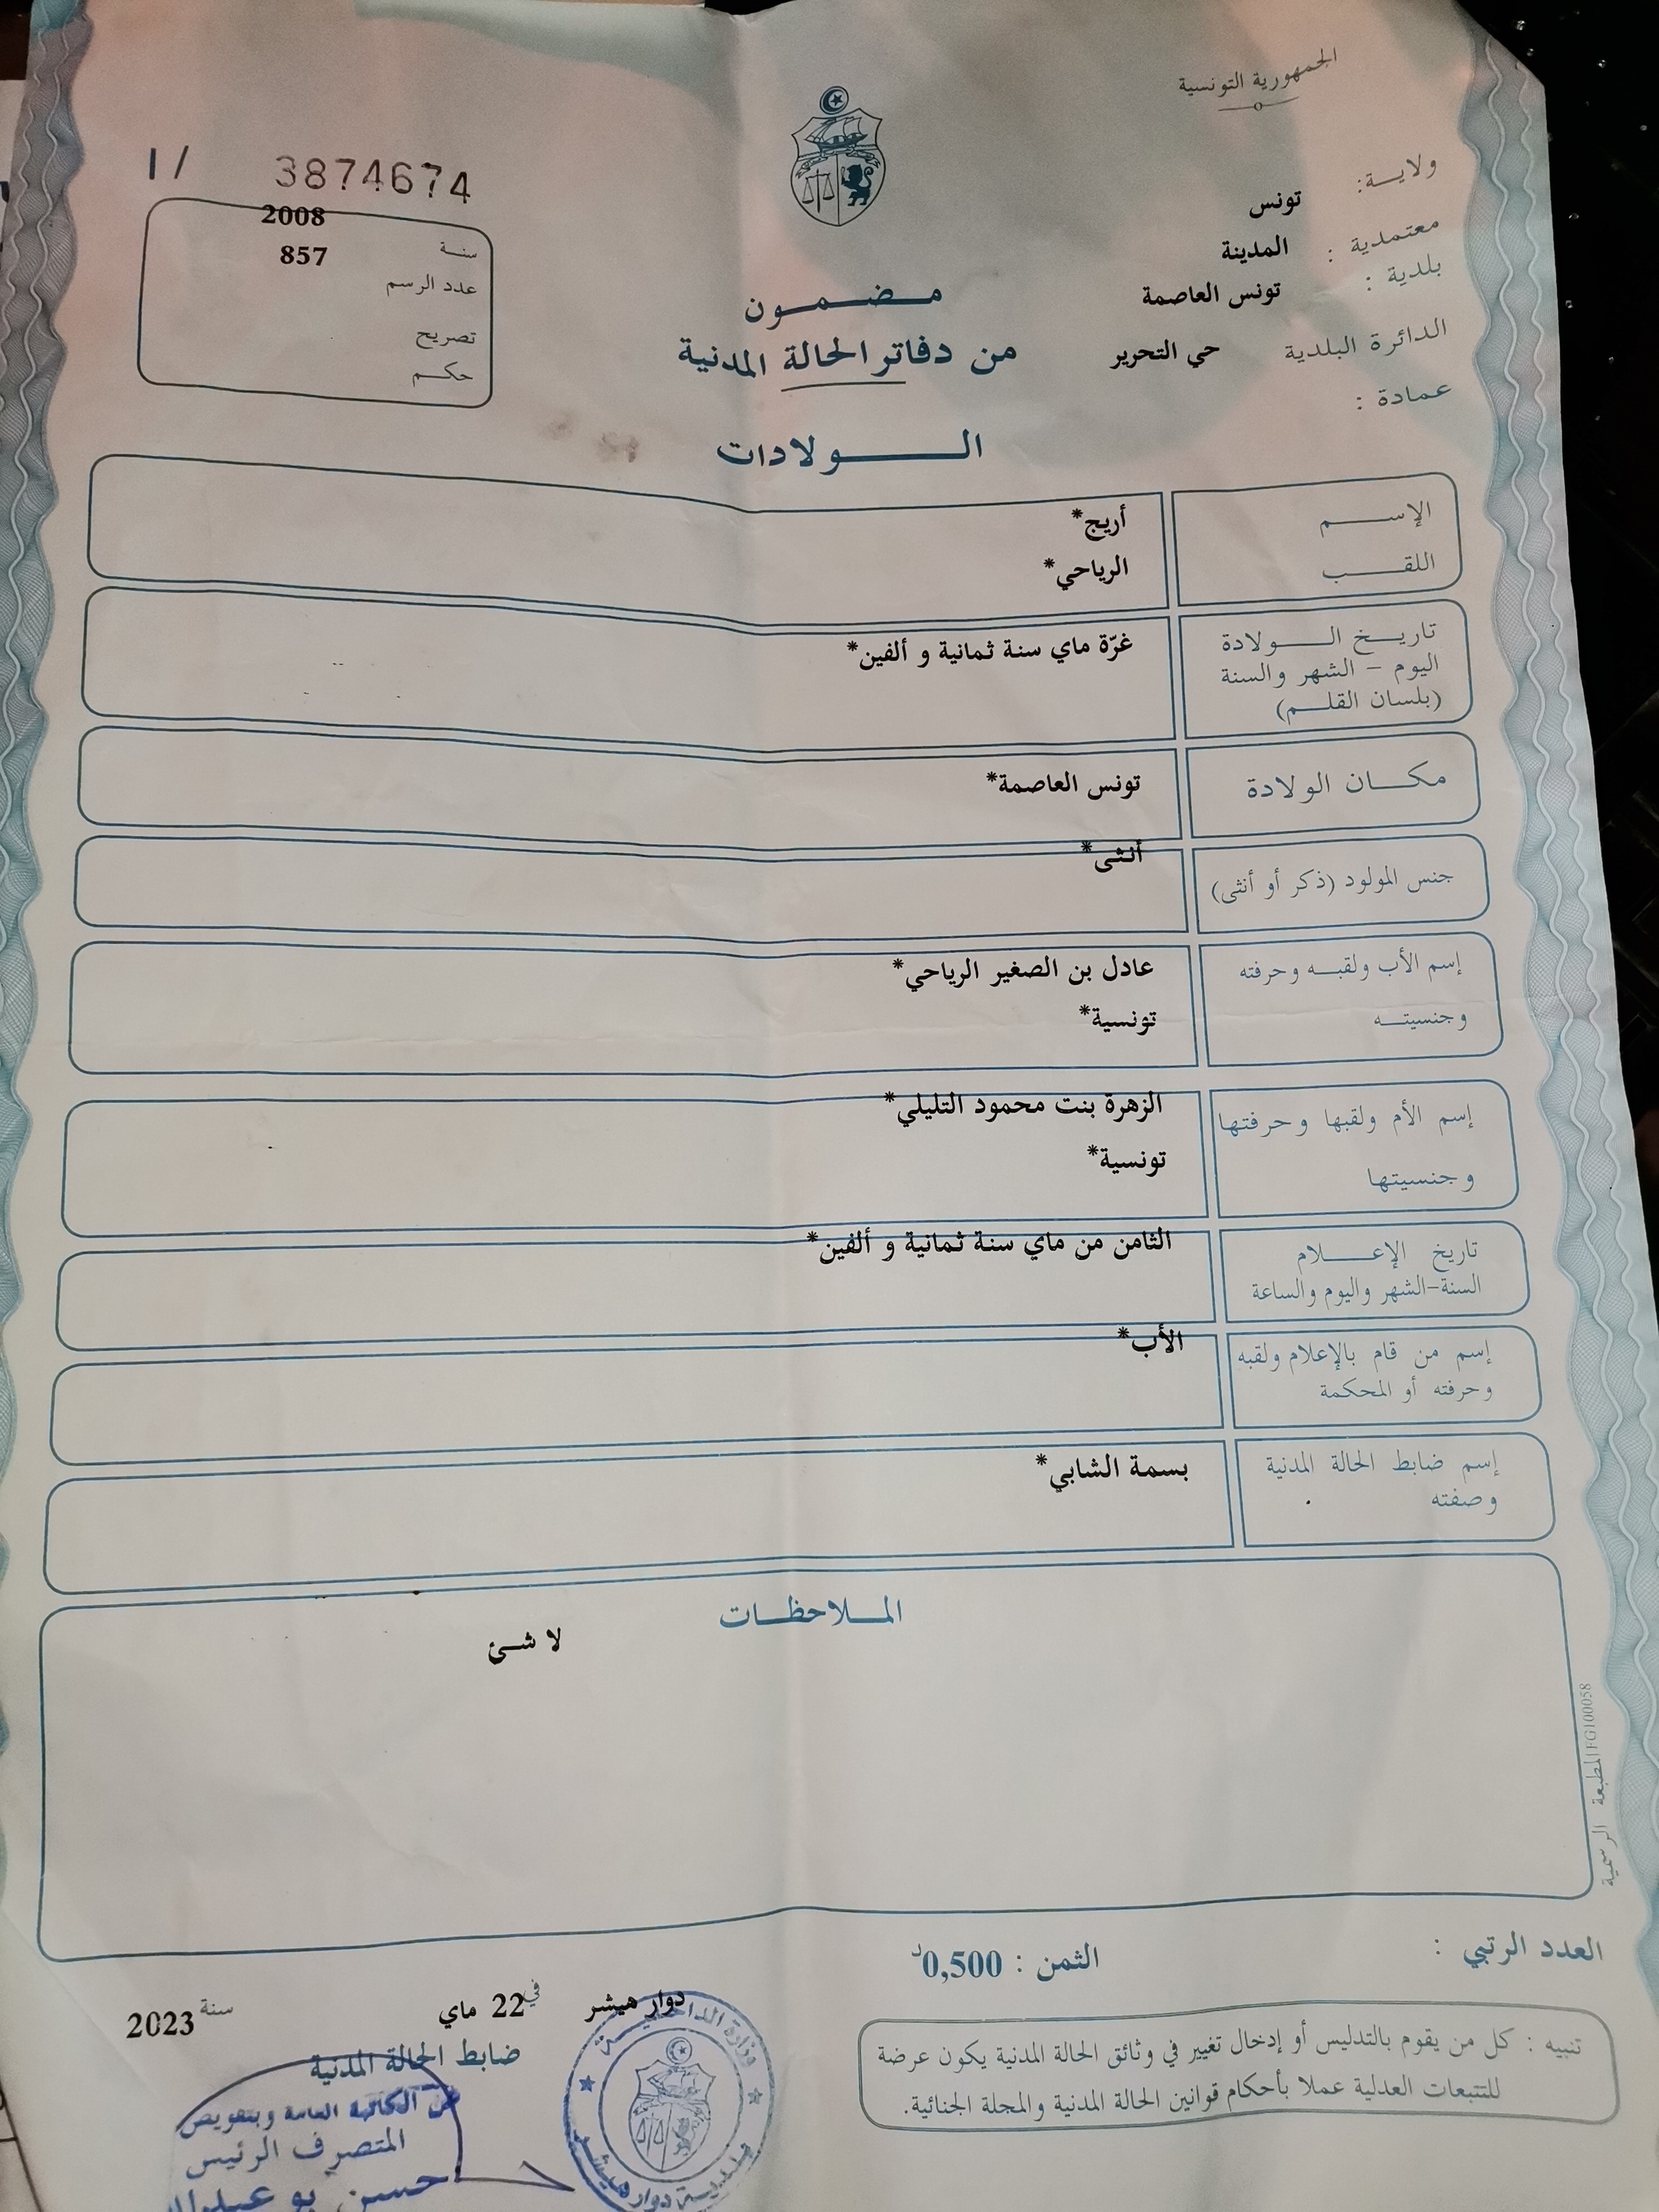 الجمهورية التونسية
ولاية: تونس
معتمدية : المدينة
بلدية : تونس العاصمة
الدائرة البلدية حي التحرير
عمادة :
1/ 3874674
سنة 2008
عدد الرسم 857
تصريح
حكم
مضمون
من دفاتر الحالة المدنية
الولادات
الإسم أريج*
اللقب الرياحي*
تاريخ الولادة غرّة ماي سنة ثمانية و ألفين*
اليوم - الشهر والسنة
(بلسان القلم)
مكان الولادة تونس العاصمة*
جنس المولود (ذكر أو أنثى) أنثى*
إسم الأب ولقبه وحرفته عادل بن الصغير الرياحي*
وجنسيته تونسية*
إسم الأم ولقبها وحرفتها الزهرة بنت محمود التليلي*
وجنسيتها تونسية*
تاريخ الإعلام الثامن من ماي سنة ثمانية و ألفين*
السنة-الشهر واليوم والساعة
إسم من قام بالإعلام ولقبه الأب*
وحرفته أو المحكمة
إسم ضابط الحالة المدنية بسمة الشابي*
وصفته
الملاحظات
لا شئ
المطبعة الرسمية FG100058
العدد الرتبي :
الثمن : 0,500د
تنبيه : كل من يقوم بالتدليس أو إدخال تغيير في وثائق الحالة المدنية يكون عرضة
للتتبعات العدلية عملا بأحكام قوانين الحالة المدنية والمجلة الجنائية.
دوار هيشر في 22 ماي سنة 2023
ضابط الحالة المدنية
عن الكاتبة العامة وبتفويض
المتصرف الرئيس
حسن بو عبدالله
وزارة الداخلية
بلدية دوار هيشر